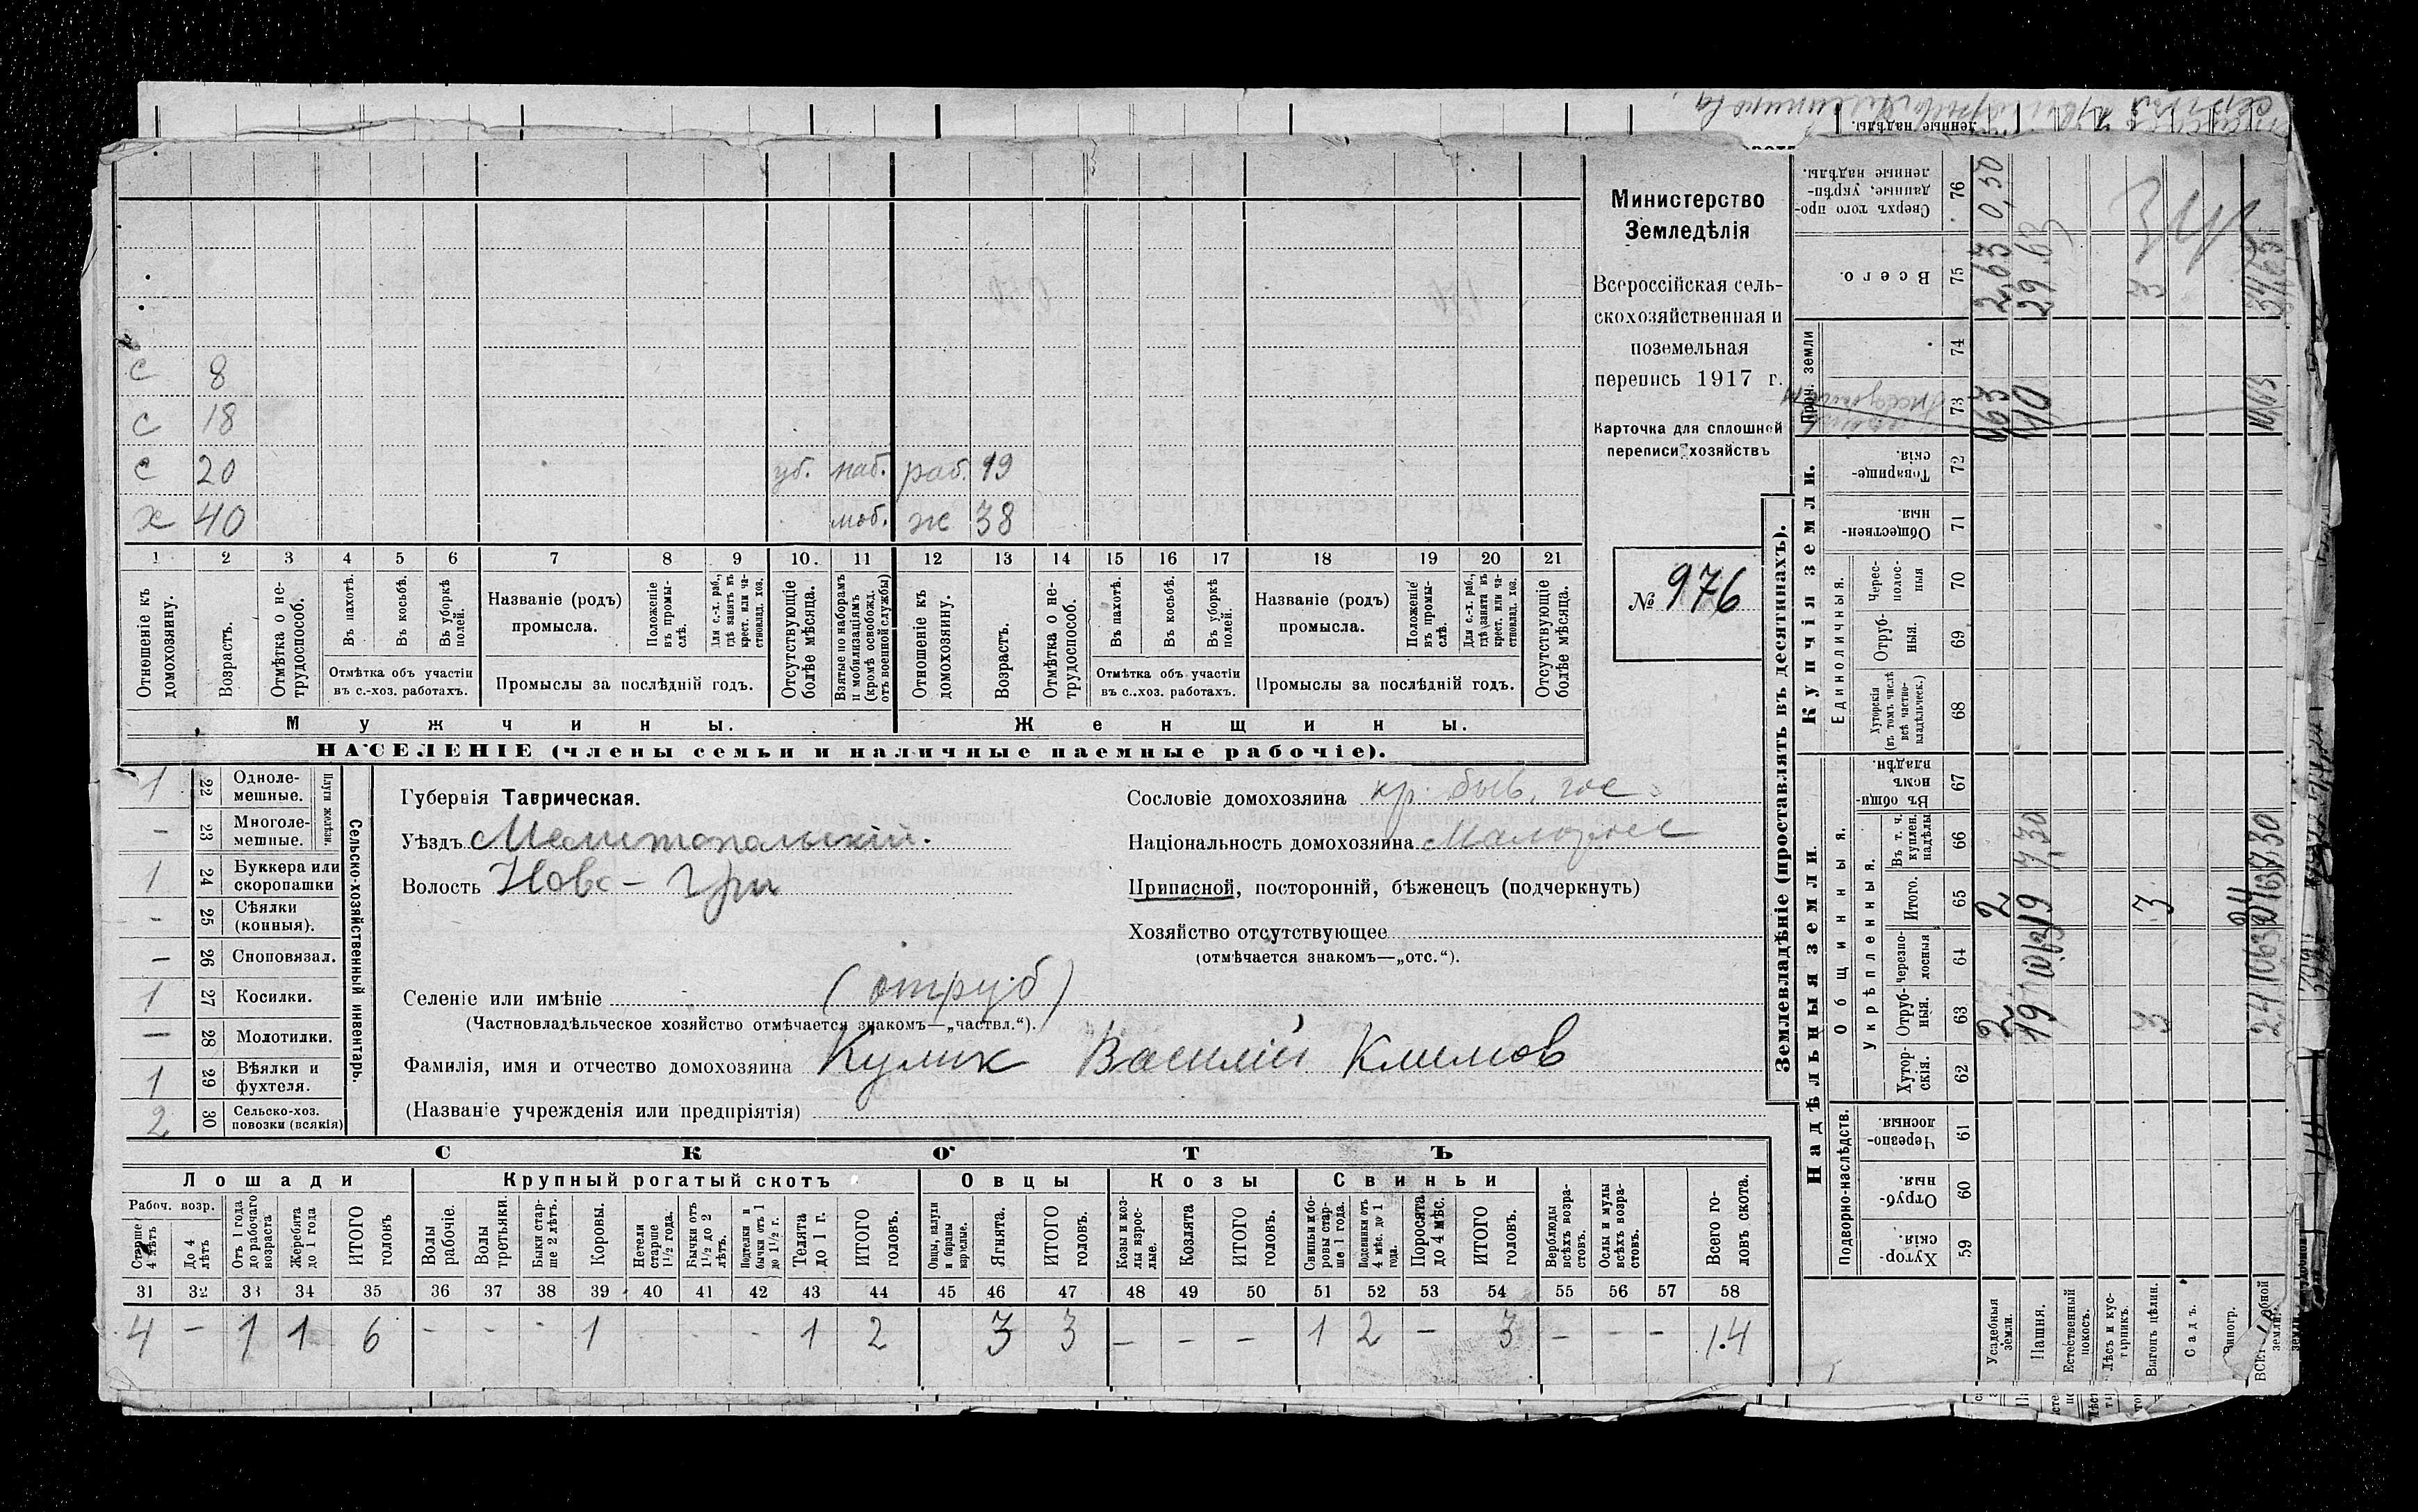 Министерство
Земледѣлія
Всероссійская сель-
скохозяйственная и
поземельная
перепись 1917 г.
Карточка для сплошной
переписи хозяйствъ
№ 976
с 8
с 18
с 20 уб. наб. раб. 19
х 40 моб. ж 38
1 2 3 4 5 6 7 8 9 10. 11 12 13 14 15 16 17 18 19 20 21
Отношеніе къ домохозяину.
Возрастъ.
Отмѣтка о не-трудоспособ.
Въ пахотѣ.
Въ косьбѣ.
Въ уборкѣ полей.
Отмѣтка объ участіи
въ с.-хоз. работахъ.
Названіе (родъ)
промысла.
Положеніе въ промы-слѣ.
Для с.-х. раб., гдѣ занятъ въ крест. или ча-стновлад. хоз.
Промыслы за послѣдній годъ.
Отсутствующіе болѣе мѣсяца.
Взятые по наборамъ и мобилизаціямъ (кромѣ освобожд. отъ военной службы)
Отношеніе къ домохозяину.
Возрастъ.
Отмѣтка о не-трудоспособ.
Въ пахотѣ.
Въ косьбѣ.
Въ уборкѣ полей.
Отмѣтка объ участіи
въ с.-хоз. работахъ.
Названіе (родъ)
промысла.
Положеніе въ промы-слѣ.
Для с.-х. раб., гдѣ занята въ крест. или ча-стновлад. хоз.
Промыслы за послѣдній годъ.
Отсутствующіе болѣе мѣсяца.
Мужчины. Женщины.
НАСЕЛЕНІЕ (члены семьи и наличные наемные рабочіе).
Сельско-хозяйственный инвентарь.
Плуги желѣзн.
1 22 Одноле-мешные.
– 23 Многоле-мешные.
1 24 Буккера или скоропашки
– 25 Сѣялки (конныя).
– 26 Сноповязал.
1 27 Косилки.
– 28 Молотилки.
1 29 Вѣялки и фухтеля.
2 30 Сельско-хоз. повозки (всякія)
Губернія Таврическая.
Уѣздъ Мелитопольскій.
Волость Ново-Гри
Сословіе домохозяина кр. быв. гос.
Національность домохозяина Малорос
Приписной, посторонній, бѣженецъ (подчеркнуть)
Хозяйство отсутствующее
(отмѣчается знакомъ—„отс.“).
Селеніе или имѣніе (отруб)
(Частновладѣльческое хозяйство отмѣчается знакомъ—„частвл.“).
Фамилія, имя и отчество домохозяина Кулик Василій Климов
(Названіе учрежденія или предпріятія)
СКОТЪ
Лошади Крупный рогатый скотъ Овцы Козы Свиньи
Рабоч. возр.
Старше 4 лѣтъ
До 4 лѣтъ
Отъ 1 года до рабочаго возраста
Жеребята до 1 года
ИТОГО головъ
Волы рабочіе.
Волы третьяки.
Быки стар-ше 2 лѣтъ.
Коровы.
Нетели старше 1½ года.
Бычки отъ 1½ до 2 лѣтъ.
Подтелки и бычки отъ 1 до 1½ г.
Телята до 1 г.
ИТОГО головъ.
Овцы, валухи и бараны взрослые.
Ягнята.
ИТОГО головъ.
Козы и коз-лы взрос-лые.
Козлята
ИТОГО головъ.
Свиньи и бо-ровы стар-ше 1 года.
Подсвинки отъ 4 мѣс. до 1 года.
Поросята до 4 мѣс.
ИТОГО головъ.
Верблюды всѣхъ возра-стовъ.
Ослы и мулы всѣхъ возра-стовъ.
Всего го-ловъ скота.
31 32 33 34 35 36 37 38 39 40 41 42 43 44 45 46 47 48 49 50 51 52 53 54 55 56 57 58
4 – 1 1 6 – – – 1 – – – 1 2 3 3 – – – 1 2 – 3 – – – 14
Землевладѣніе (проставлять въ десятинахъ).
Надѣльныя земли.
Купчія земли.
Проч. земли
Подворно-наслѣдств.
Общинныя.
Укрѣпленныя.
Единоличныя.
Хутор-скія. 59
Отруб-ныя. 60
Черезпо-лосныя 61
Хутор-скія. 62
Отруб-ныя. 63
Черезпо-лосныя 64
Итого. 65
Въ т. ч. куплен. надѣлы 66
Въ общи-номъ владѣн. 67
Хуторскія (въ томъ числѣ всѣ частно-владѣльческ.) 68
Отруб-ныя. 69
Черес-полос-ныя 70
Обществен-ныя 71
Товарище-скія. 72
73
74
Всего. 75
Сверхъ того про-данные, укрѣп-ленные надѣлы. 76
Усадебныя земли. 2 2 2,63 0,50
Пашня. 19 19 7,30 110 29.63
Естественный покосъ.
Лѣсъ и кус-тарникъ.
Выгонъ цѣлин. 3 3 3
Садъ.
Виногр.
34